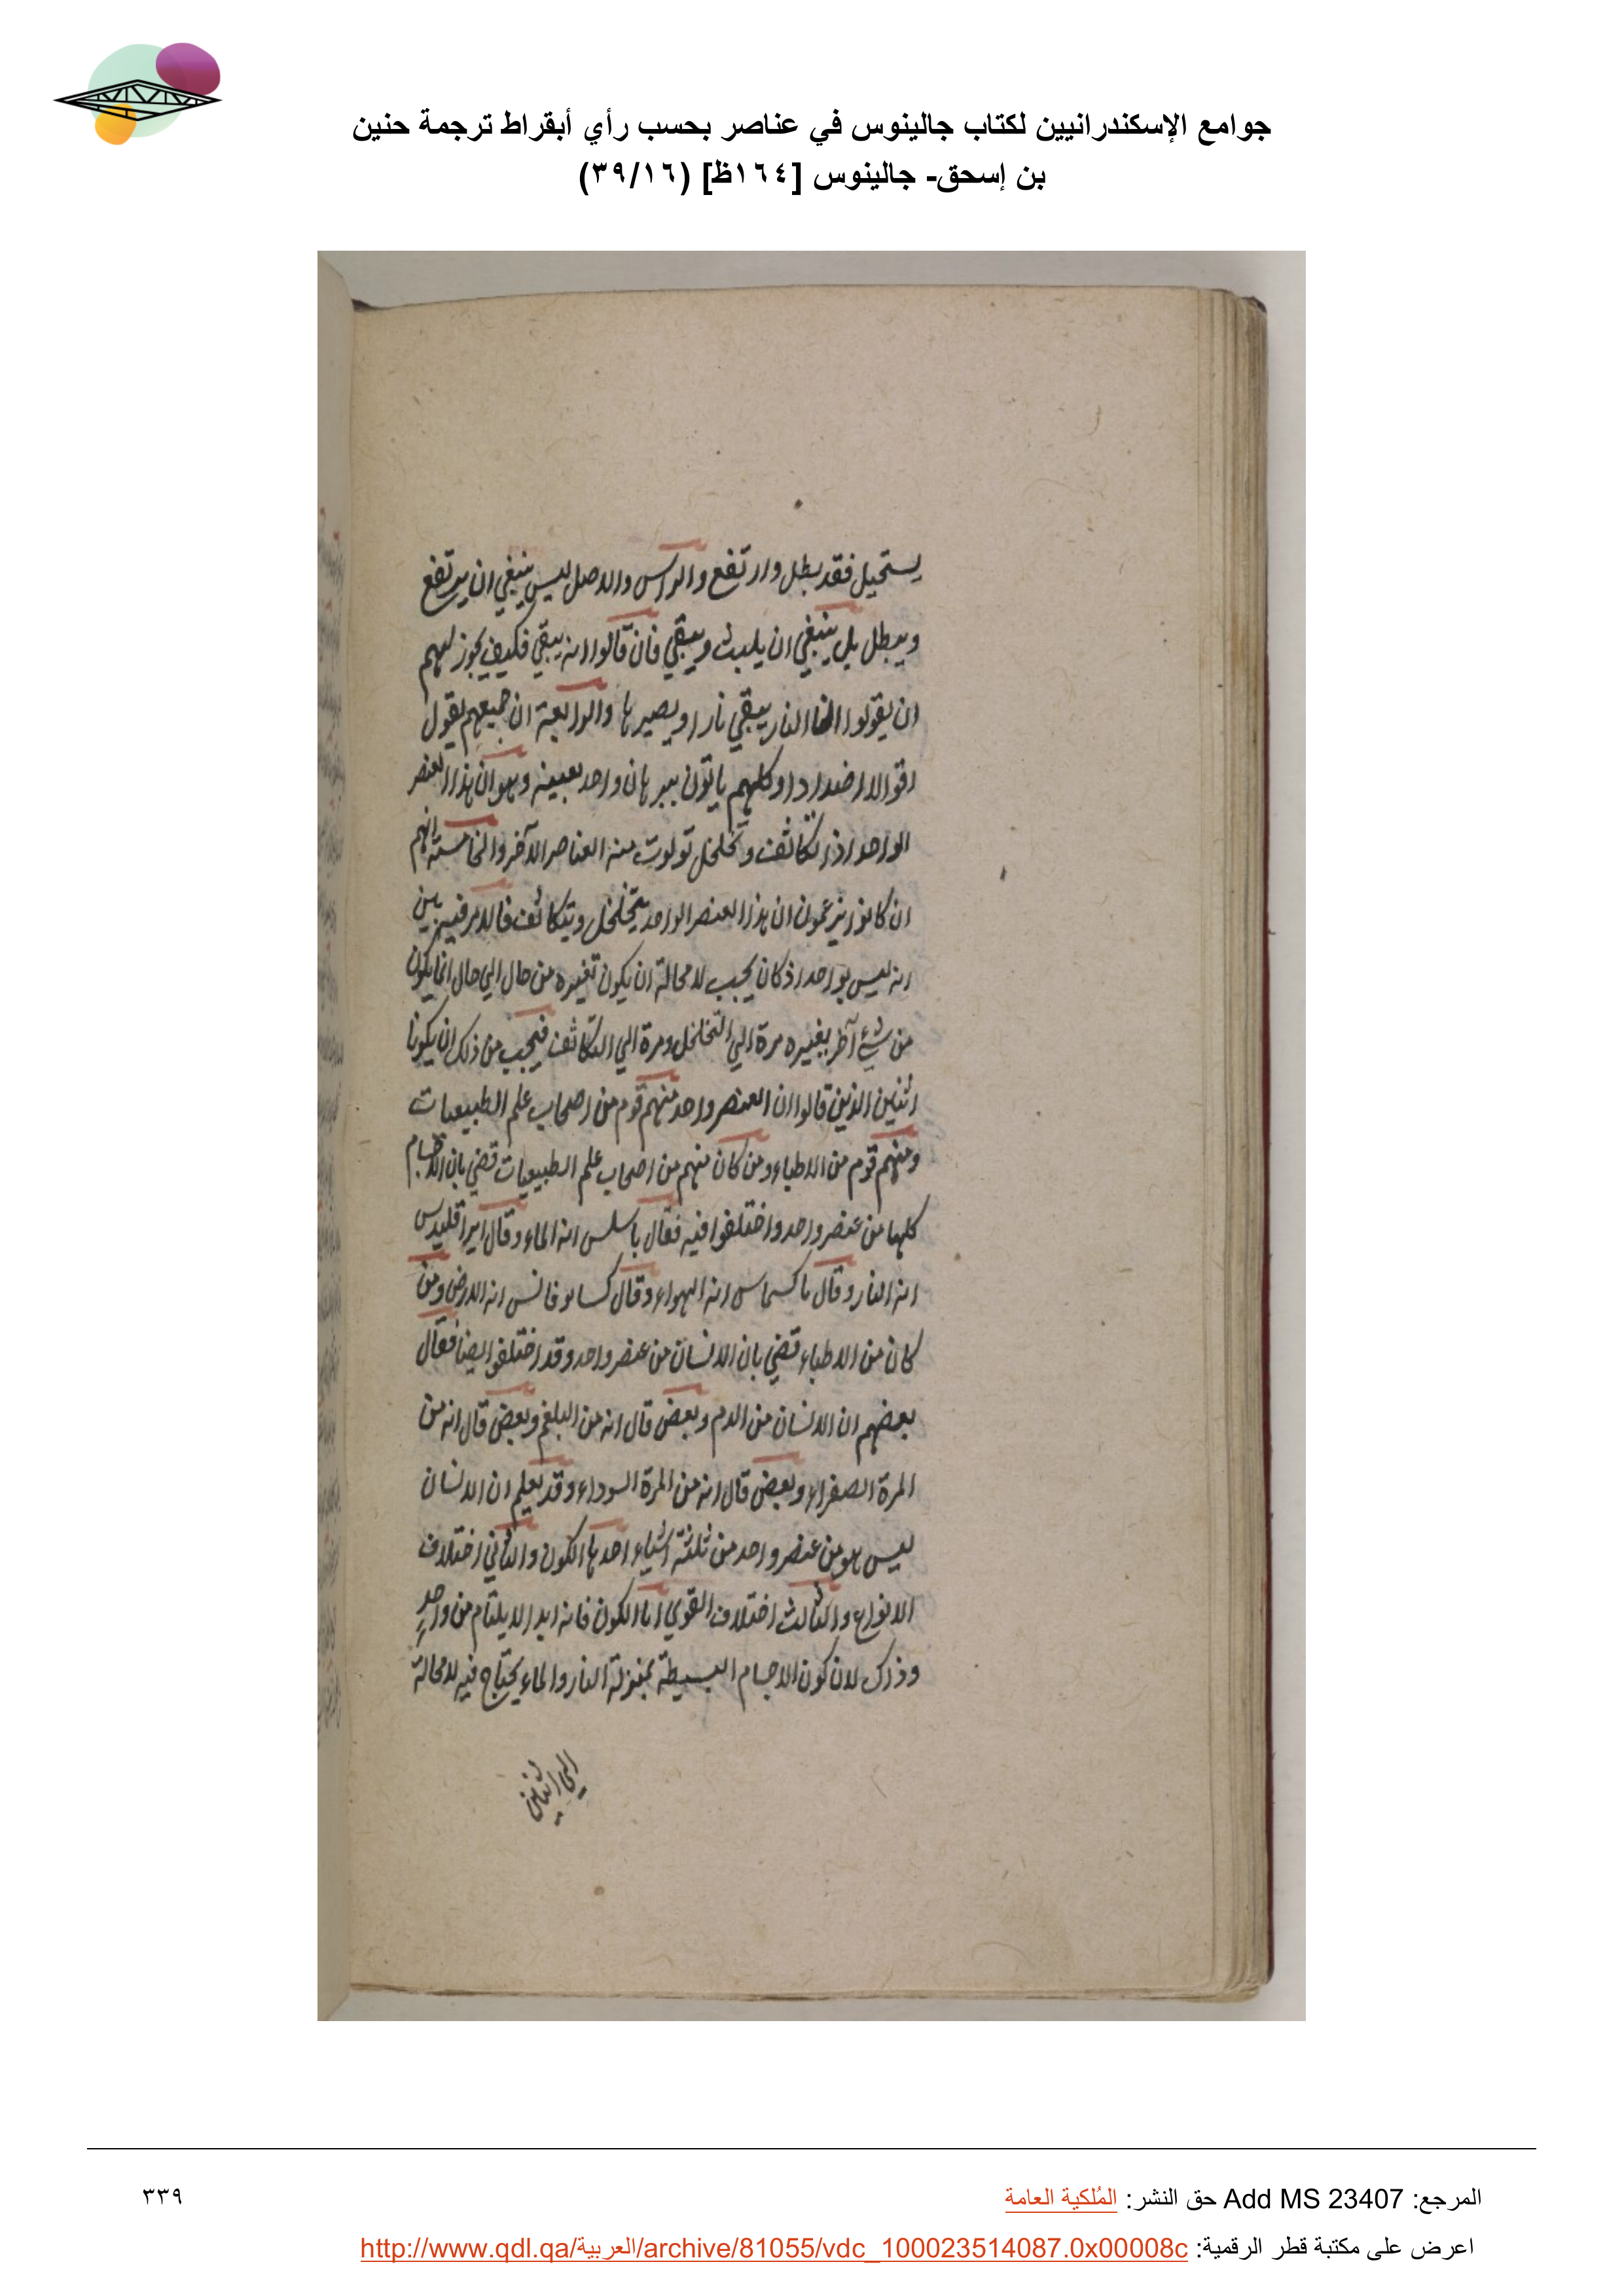 جوامع الإسكندرانيين لكتاب جالينوس في عناصر بحسب رأي أبقراط ترجمة حنين
بن إسحق- جالينوس [١٦٤ظ] (٣٩/١٦)
يستحيل فقد بطل وارتفع والراس والاصل ليس ينبغي ان يرتفع
ويبطل بل ينبغي ان يلبث ويبقي فان قالوا انه يبقي فكيف يجوز لهم
ان يقولوا النار يبقي نارا ويصير ها والرابعة ان جميعهم يقول
اقوالا اضدادا وكلهم ياتون ببرهان واحد بعينه وهو ان هذا العنصر
الواحد اذا تكاثف وتخلخل تولدت منه العناصر الآخر والخامسة انهم
ان كانوا يزعمون ان هذا العنصر الواحد يتخلخل ويتكاثف فالامر فيه بين
انه ليس بواحد اذ كان يجب لا محالة ان يكون تغيره من حال الي حال انما يكون
من شيء آخر يغيره مرة الي التخلخل ومرة الي التكاثف فيجب من ذلك ان يكونا
اثنين الذين قالوا ان العنصر واحد منهم قوم من اصحاب علم الطبيعيات
ومنهم قوم من الاطباء ومن كان منهم من اصحاب علم الطبيعيات قضي بان الاجسام
كلها من عنصر واحد واختلفوا فيه فقال باسلس انه الماء وقال ايراقليدس
انه النار وقال انه الهواء وقال انه الارض ومن
كان من الاطباء قضي بان الانسان من عنصر واحد وقد اختلفوا ايضا فقال
بعضهم ان الانسان من الدم وبعض قال انه من البلغم وبعض قال انه من
المرة الصفراء وبعض قال انه من المرة السوداء وقد يعلم ان الانسان
ليس هو من عنصر واحد من ثلثة اشياء احدها الكون والثاني اختلاف
الانواع والثالث اختلاف القوي اما الكون فانه ابدا لا يلتام من واحدٍ
وذلك لان كون الاجسام البسيطة بمنزلة النار والماء يحتاج فيه لا محالة
الي اثنين
المرجع: Add MS 23407 حق النشر: المُلكية العامة
٣٣٩
اعرض على مكتبة قطر الرقمية: http://www.qdl.qa/العربية/archive/81055/vdc_100023514087.0x00008c